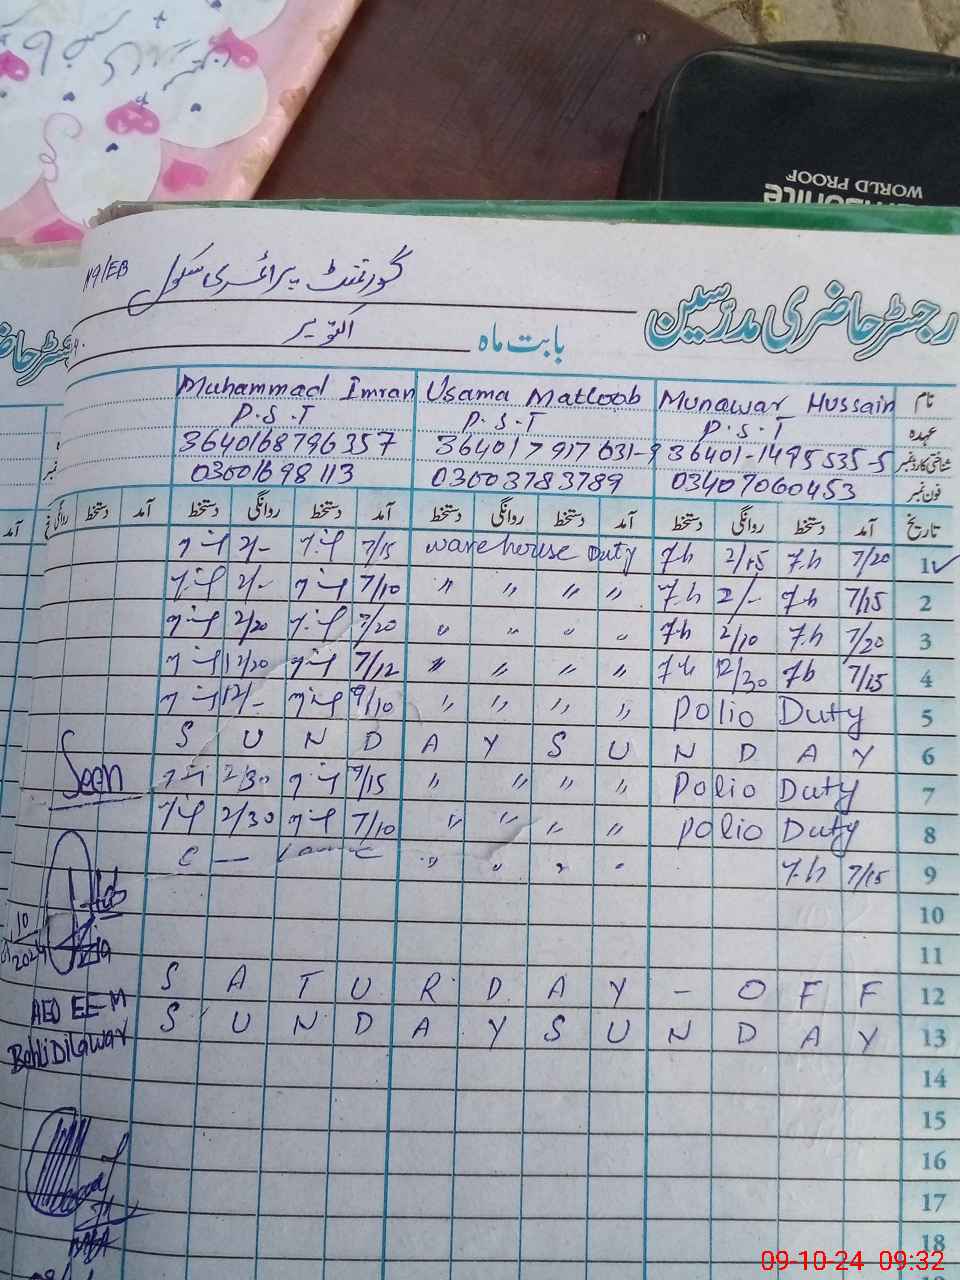 WORLD PROOF
گورنمنٹ پرائمری سکول
رجسٹر حاضری مدرّسین
بابت ماہ
اکتوبر
نام Munawar Hussain Usama Matloob Muhammad Imran
عہدہ P.S.T P.S.T P.S.T
شناختی کارڈ نمبر 36401-1495535-5 3640168796357
فون نمبر 03407060453 03603783789 03001698113
تاریخ آمد دستخط روانگی دستخط آمد دستخط روانگی دستخط آمد دستخط روانگی دستخط آمد دستخط روانگی
1 7/20 7.h 2/15 7.h warehouse Duty 7/15 2/-
2 7/15 7.h 2/- 7.h " " " " 7/10 2/-
3 7/20 7.h 2/10 7.h " " " " 7/20 2/20
4 7/15 7h 12/30 7h " " " " 7/12 12/20
5 Polio Duty " " " " 12/-
6 S U N D A Y S U N D A Y
7 Polio Duty " " " " 7/15 2/30
Seen
8 Polio Duty " " " " 7/10 2/30
9 7/15 7.h " " " "
10
11
12 S A T U R D A Y - O F F
13 S U N D A Y S U N D A Y
14
15
16
17
18
10
2024
AEO EE-M
Behli Dilawar
09-10-24 09:32